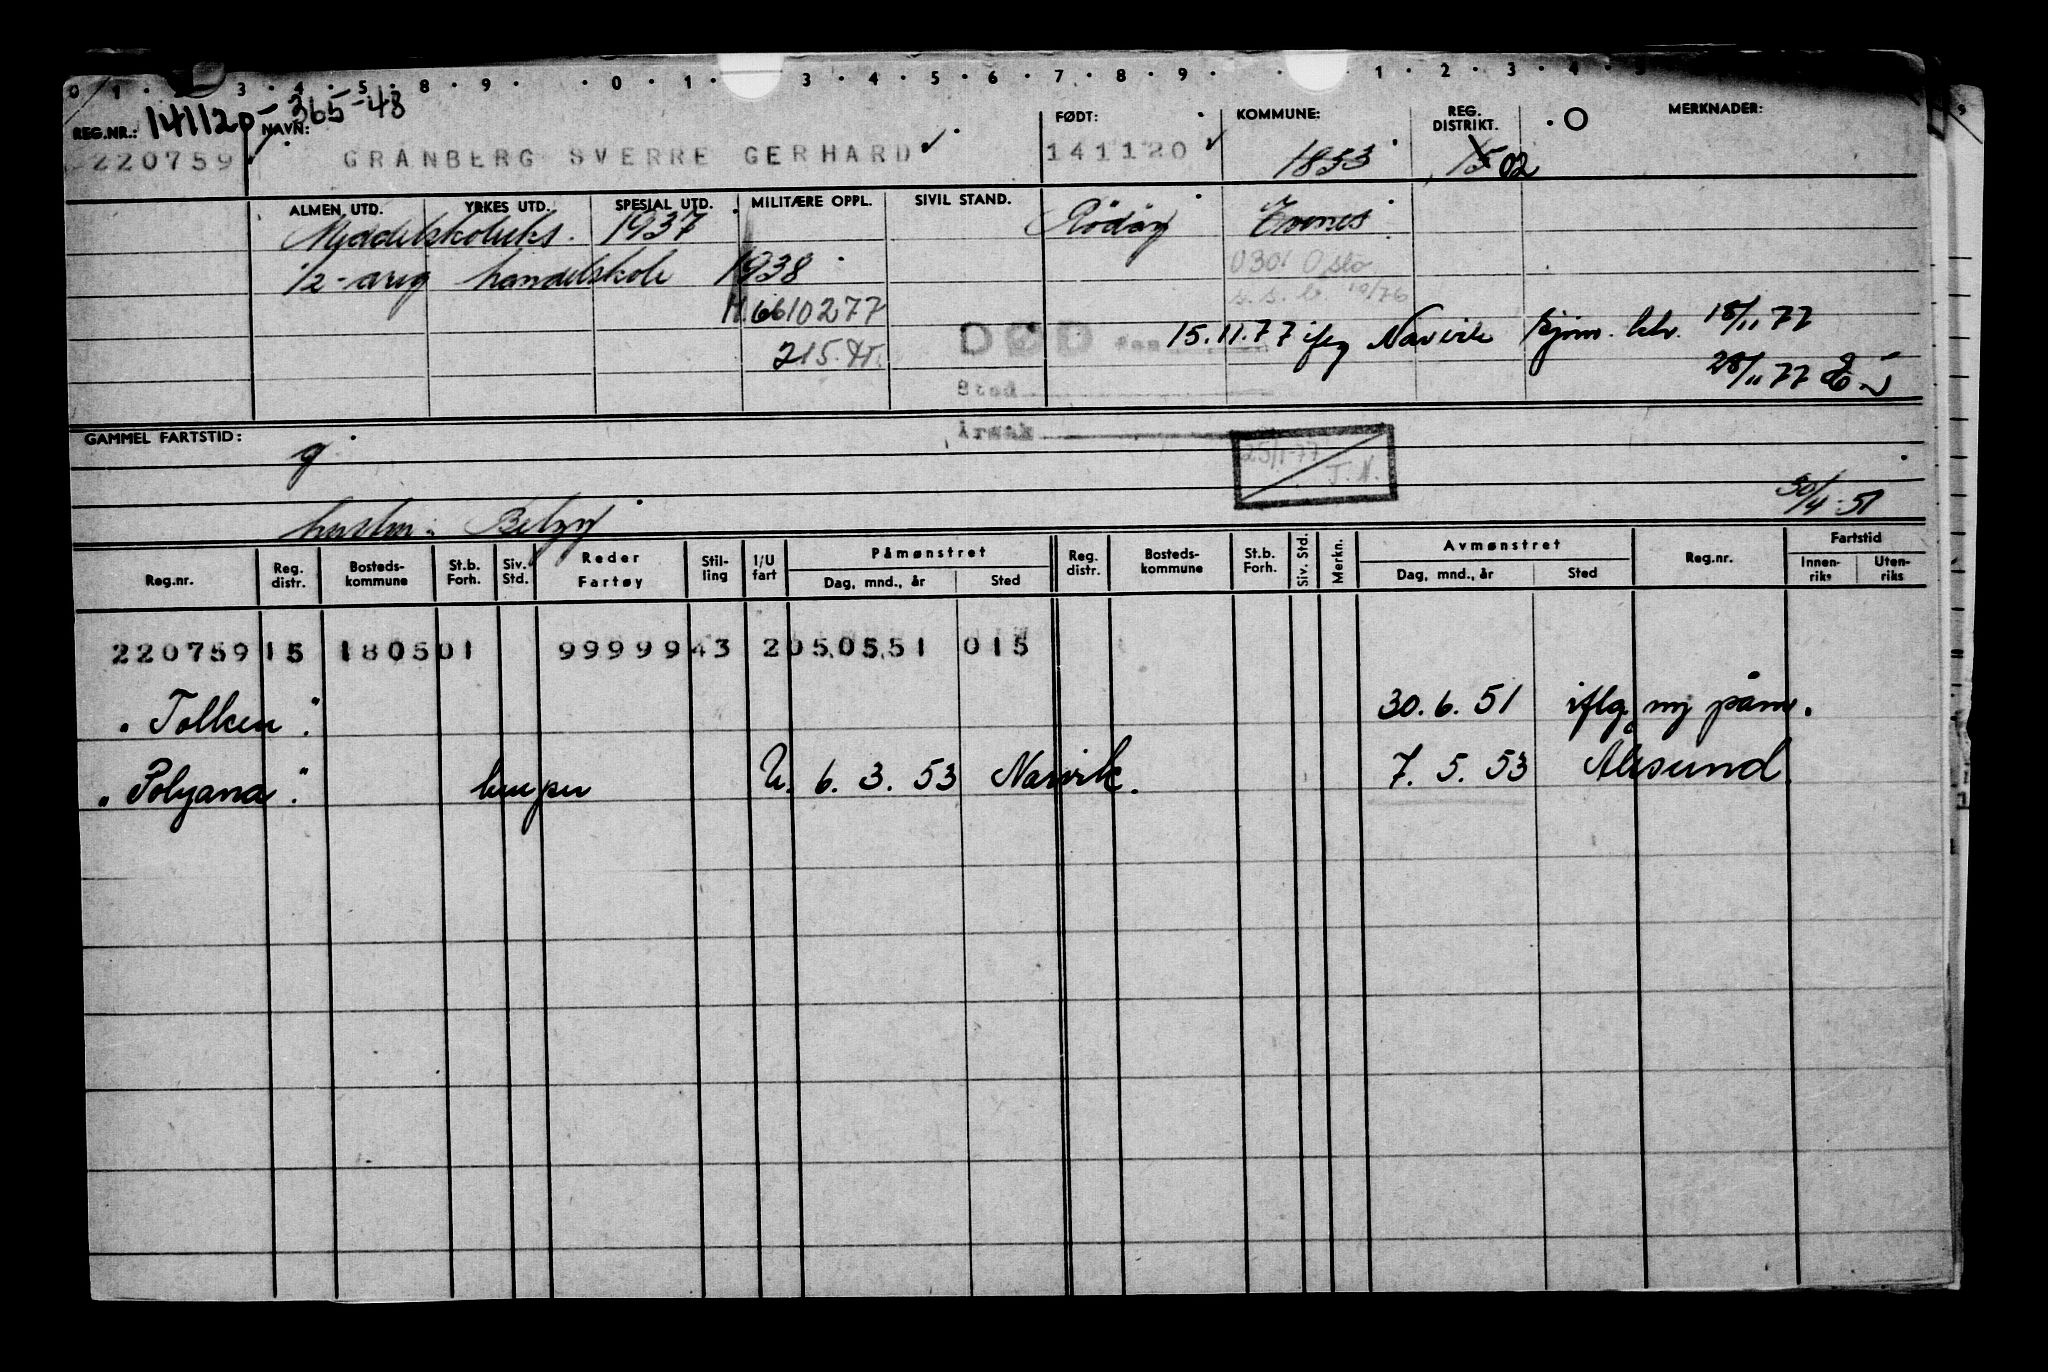 0 1 . 3 . 4 . 5 . 8 . 9 . 0 . 1 . 3 . 4 . 5 . 6 . 7 . 8 . 9 . 1 . 2 . 3 . 4 .
REG.NR.: 141120-365-48 NAVN: FØDT: KOMMUNE: REG. DISTRIKT. MERKNADER:
220759 GRANBERG SVERRE GERHARD 141120 1853 15 02
ALMEN UTD. YRKES UTD. SPESIAL UTD. MILITÆRE OPPL. SIVIL STAND.
Middelskoleeks. 1937 Evenes
1/2-årig handelskole 1938 0301 Oslo
H.6610277 10/76
215. DØD 15.11.77 iflg Narvik 18/11 77
Sted 28/11 77
Årsak
GAMMEL FARTSTID:
g
25/1-77 J.N.
30/4-51
Reg.nr. Reg. distr. Bosteds-kommune St.b. Forh. Siv. Std. Reder Fartøy Stil-ling I/U fart Påmønstret Dag, mnd., år Sted Reg. distr. Bosteds-kommune St.b. Forh. Siv. Std. Merkn. Avmønstret Dag, mnd., år Sted Reg.nr. Fartstid Innen-riks Uten-riks
220759 15 1805 01 99999 43 2 050551 015
"Tolken". 30.6.51 iflg. ny påm.
"Polyana". lemper U. 6.3.53 Narvik. 7.5.53 Ålesund.